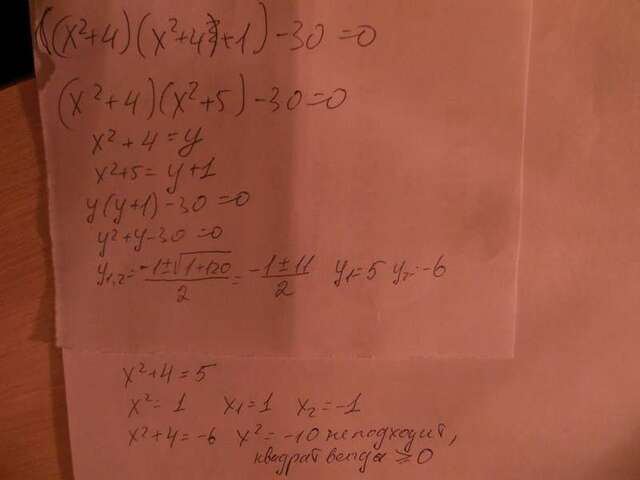 ((x²+4)(x²+4+1)-30=0
(x²+4)(x²+5)-30=0
x²+4=y
x²+5=y+1
y(y+1)-30=0
y²+y-30=0
y₁,₂=(-1±√(1+120))/2=(-1±11)/2 y₁=5 y₂=-6
x²+4=5
x²=1 x₁=1 x₂=-1
x²+4=-6 x²=-10 не подходит,
квадрат всегда ≥0